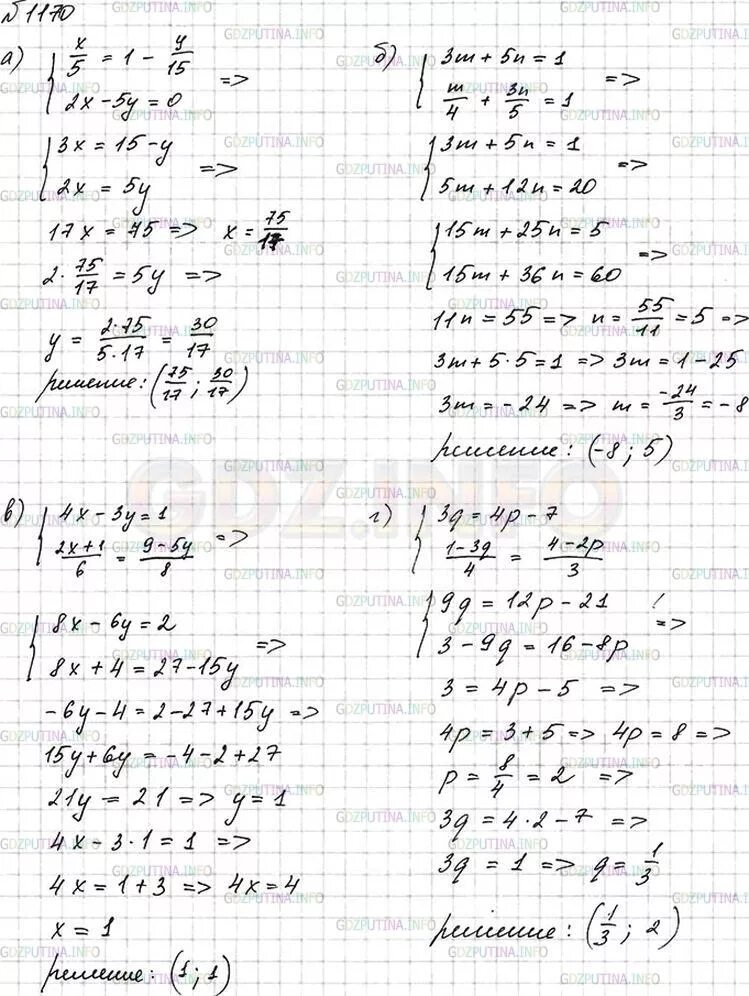 №1170
а) { x/5 = 1 - y/15
2x - 5y = 0 =>
{ 3x = 15 - y
2x = 5y =>
17x = 75 => x = 75/17
2 · 75/17 = 5y =>
y = 2·75/5·17 = 30/17
решение: (75/17 ; 30/17)
б) { 3m + 5n = 1
m/4 + 3n/5 = 1 =>
{ 3m + 5n = 1
5m + 12n = 20 =>
{ 15m + 25n = 5
15m + 36n = 60 =>
11n = 55 => n = 55/11 = 5 =>
3m + 5·5 = 1 => 3m = 1 - 25
3m = -24 => m = -24/3 = -8
решение: (-8 ; 5)
GDZ.INFO
в) { 4x - 3y = 1
2x+1/6 = 9-5y/8 =>
{ 8x - 6y = 2
8x + 4 = 27 - 15y =>
-6y - 4 = 2 - 27 + 15y =>
15y + 6y = -4 - 2 + 27
21y = 21 => y = 1
4x - 3·1 = 1 =>
4x = 1 + 3 => 4x = 4
x = 1
решение: (1 ; 1)
г) { 3q = 4p - 7
1-3q/4 = 4-2p/3
{ 9q = 12p - 21
3 - 9q = 16 - 8p =>
3 = 4p - 5 =>
4p = 3 + 5 => 4p = 8 =>
p = 8/4 = 2 =>
3q = 4·2 - 7 =>
3q = 1 => q = 1/3
решение: (1/3 ; 2)
GDZPUTINA.INFO